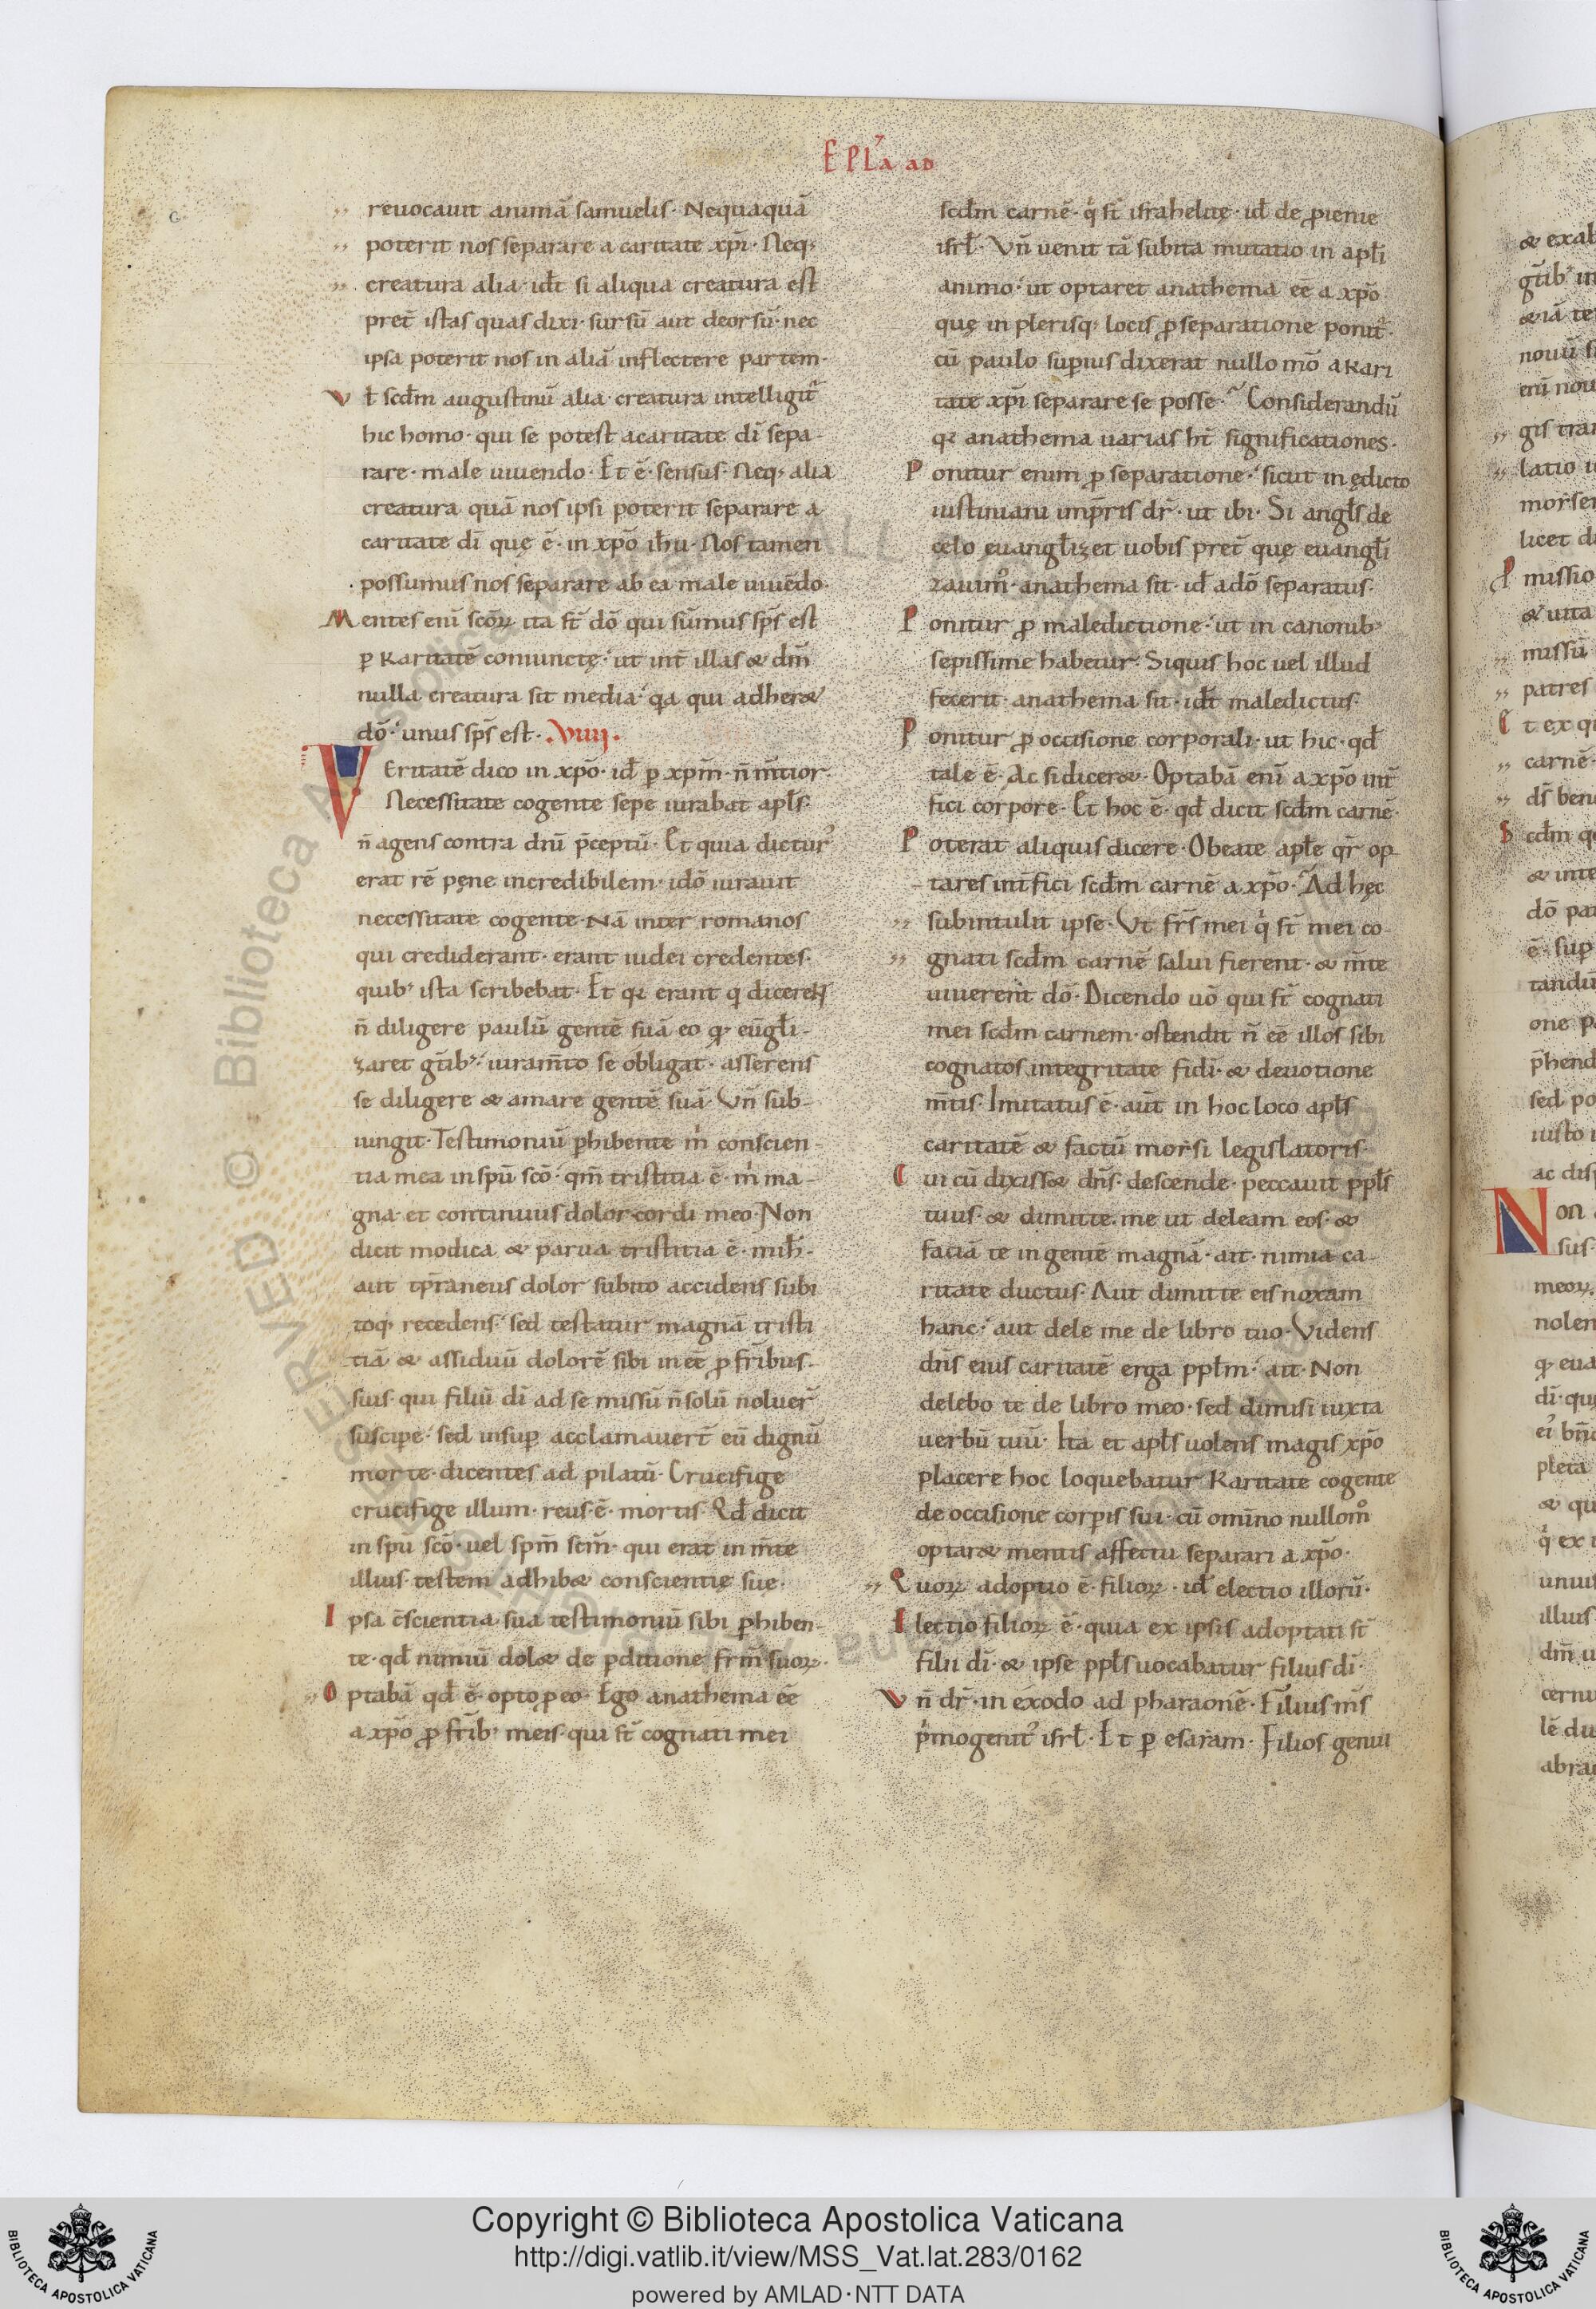 EPL̄a ad
reuocauit animā samuelis· Nequaquā
poterit nos separare a caritate xp̄i· Neq;
creatura alia· idē si aliqua creatura est
pret̄ istas quas dixi· sursū aut deorsū· nec
ipsa poterit nos in aliā inflectere partem·
Vł scd̄m augustinū alia creatura intelligit᷑
hic homo· qui se potest a caritate dī sepa-
rare· male uiuendo· Et ē· sensus· Neq; alia
creatura quā nos ipsi poterit separare a
caritate dī quę ē· in xp̄o ih̄u· Nos tamen
possumus nos separare ab ea male uiuēdo·
Mentes enī scōꝝ ita st̄ dō qui sūmus sp̄s est
ꝑ karitatē coniunctę· ut int̄ illas & dm̄
nulla creatura sit media· qa qui adher&
dō· unus sp̄s est· .VIIII.
VEritatē dico in xp̄o· id̄ ꝑ xp̄m· n̄ m̄tior·
Necessitate cogente sepe iurabat apl̄s·
n̄ agens contra dn̄i p̄ceptū· Et quia dictur᷒
erat rē pęne incredibilem· idō iurauit
necessitate cogente· Nā inter romanos
qui crediderant· erant iudei credentes·
quib; ista scribebat· Et qꝛ erant q dicerent
n̄ diligere paulū gentē suā eo qꝫ eūgl̄i-
zaret gt̄ib;· iuram̄to se obligat· asserens
se diligere & amare gentē suā· Vn̄ sub-
iungit· Testimoniū ꝑhibente m̍ conscien-
tia mea in spū scō· qm̄ tristitia ē· m̍ ma-
gna et continuus dolor cordi meo· Non
dicit modica & parua tristitia ē· mih̄·
aut tp̄raneus dolor subito accidens subi
toq; recedens· sed testatur magnā tristi
tiā & assiduū dolorē sibi inēē ꝓ fr̄ibus
suis· qui filiū dī ad se missū n̄ solū noluer̄
suscipe· sed insuꝑ acclamauert̄ eū dignū
morte· dicentes ad pilatū· Crucifige
crucifige illum· reus ē· mortis· Qd̄ dicit
in spū scō· uel spm̄ scm̄· qui erat in m̄te
illius· testem adhib& conscientię suę·
Ipsa c̄scientia sua testimoniū sibi ꝑhiben-
te· qd̄ nimiū dol& de ꝑditione frm̄ suoꝝ·
Optabā qd̄ ē· opto ꝑ eo· Ego anathema eē
a xp̄o ꝓ frib; meis· qui st̄ cognati mei
scd̄m carnē· q̍ st̄ israhelitę· id̄ de ꝓienie
isrl̄· Vn̄ uenit tā subita mutatio in apl̄i
animo· ut optaret anathema eē a xp̄o·
quę in pl̄erisq; locis ꝓ separatione ponit᷑·
cū paulo supius dixerat nullo mō a kari
tate xp̄i separare se posse· Considerandū
qꝛ anathema uarias ht̄ significationes·
Ponitur enim ꝓ separatione· sicut in ędicto
iustiniani imp̄ris dr̄· ut ibi· Si angl̄s de
cęlo euangl̄izet uobis pret̄ quę euangl̄i
zauim᷒· anathema sit· id̄ adō separatus·
Ponitur ꝓ maledictione· ut in canonib;
sepissime habetur· Siquis hoc uel illud
fecerit· anathema sit· idē maledictus·
Ponitur ꝓ occisione corporali· ut hic· qd̄
tale ē· Ac si dicer&· Optabā enī a xp̄o int̄
fici corpore· Et hoc ē· qd̄ dicit scd̄m carnē·
Poterat aliquis dicere· O beate apl̄e qr̄ op
tares int̄fici scd̄m carnē a xp̄o· Ad hęc
subintulit ipse· Vt frs̄ mei q̍ st̄ mei co-
gnati scd̄m carnē salui fierent· & m̄te
uiuerent dō· Dicendo uō qui st̄ cognati
mei scd̄m carnem· ostendit n̄ eē illos sibi
cognatos integritate fidi· & deuotione
m̄tis· Imitatus ē· aut̄ in hoc loco apl̄s
caritatē & factū morsi legislatoris·
Cui cū dixiss& dn̄s· descende· peccauit ppl̄s
tuus· & dimitte me ut deleam eos· &
faciā te in gentē magnā· ait· nimia ca
ritate ductus· Aut dimitte eis noxam
hanc· aut dele me de libro tuo· Videns
dn̄s eius caritatē erga ppl̄m· ait· Non
delebo te de libro meo· sed dimisi iuxta
uerbū tuū· Ita et apl̄s uolens magis xp̄o
placere hoc loquebatur karitate cogente
de occisione corpis sui· cū omīno nullom᷒
optar& mentis affectu separari a xp̄o·
Quoꝝ adoptio ē· filioꝝ· id̄ electio illorū·
Electio filioꝝ ē· quia ex ipsis adoptati st̄
filii dī· & ipse ppl̄s uocabatur filius dī·
Vn̄ dr̄· in exodo ad pharaonē· Filius ms̄
p̍mogenit᷒ isrl̄· Et ꝑ esaiam· Filios genui
Copyright © Biblioteca Apostolica Vaticana
http://digi.vatlib.it/view/MSS_Vat.lat.283/0162
powered by AMLAD·NTT DATA